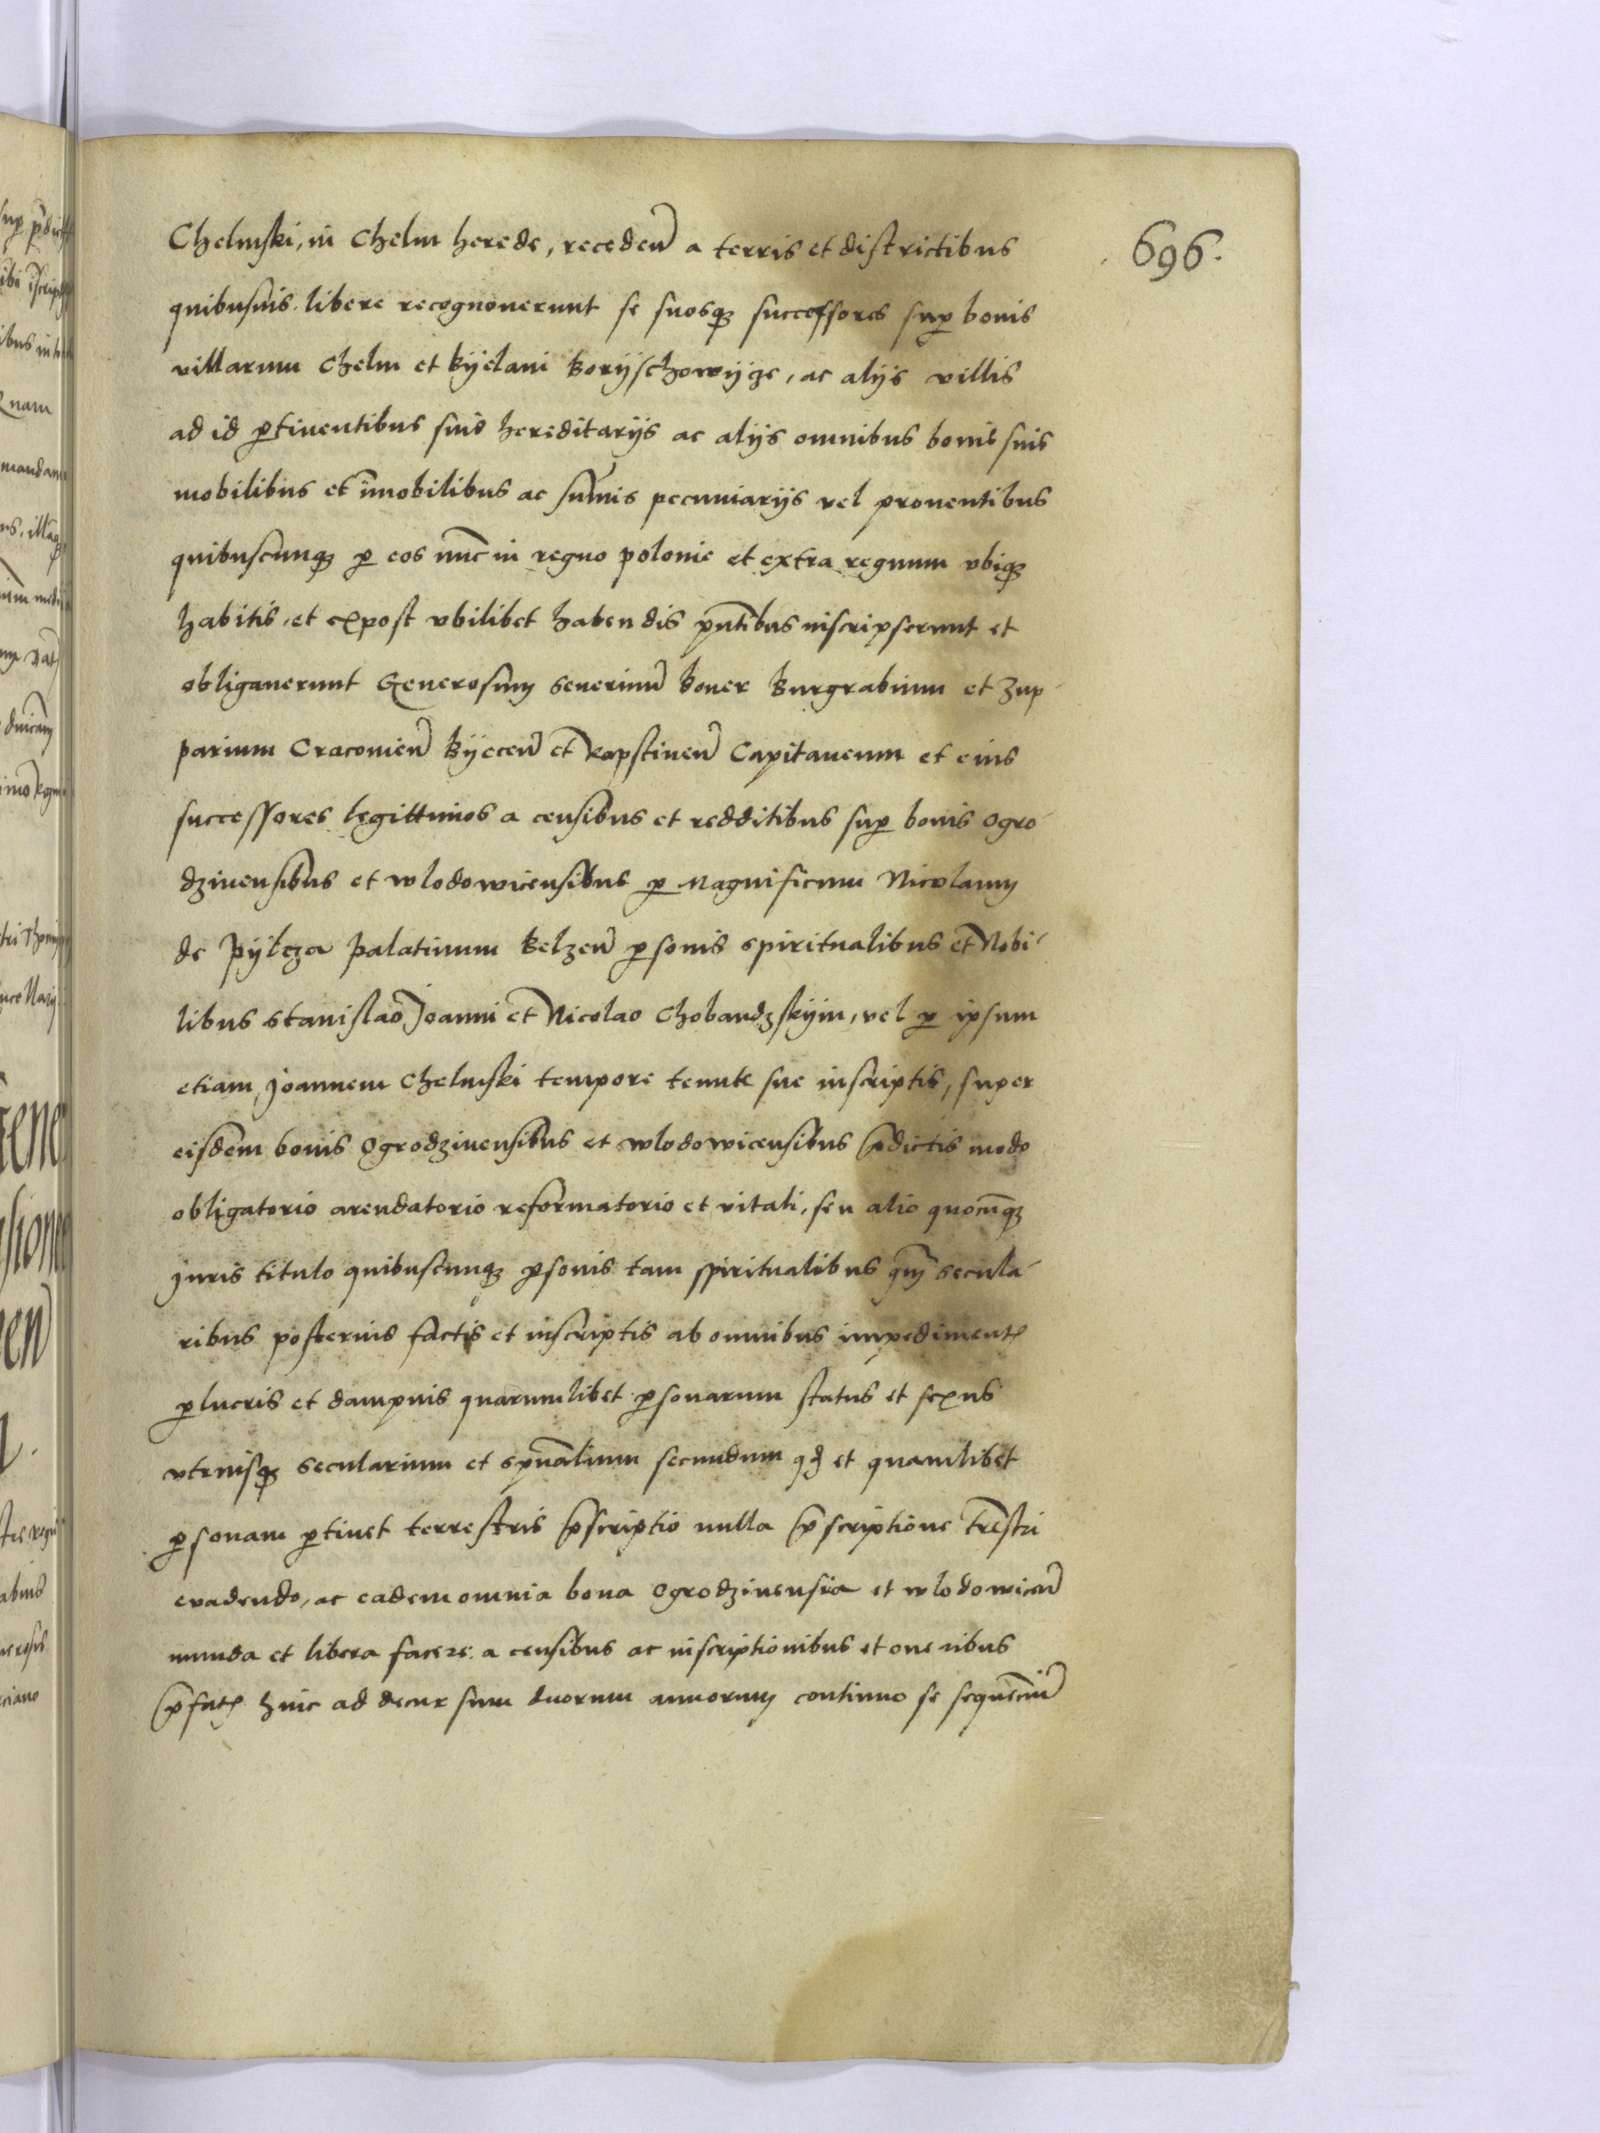 696.
Chelmski, in Chelm herede, recedeñ a terris et districtibus
quibusuis libere recognouerunt se suosqꝫ successores suꝑ bonis
villarum Chelm et Kyelani Boryschowycze, ac alijs villis
ad id ꝑtinentibus suis hereditarijs ac alijs omnibus bonis suis
mobilibus et im̄obilibus ac sum̄is pecuniarijs vel prouentibus
quibuscunqꝫ ꝑ eos nūc in regno polonie et extra regnum vbiqꝫ
habitis, et expost vbilibet habendis pn̄tibus inscripserunt et
obligauerunt Generosum Seuerinū Boner Burgrabium et Zup-
parium Cracouieñ Byeceñ et Rapstineñ Capitaneum et eius
successores legittimos a censibus et redditibus suꝑ bonis Ogro-
dzinensibus et wlodowicensibus ꝑ Magnificum Nicolaum
de Pylcza Palatinum Belzeñ ꝑsonis spiritualibus et Nobi-
libus Stanislao Joanni et Nicolao Chobandzskym, vel ꝑ ipsum
etiam Joannem Chelmski tempore tenute sue inscriptis, super
eisdem bonis Ogrodzinensibus et wlodowicensibus p̄dictis modo
obligatorio arendatorio reformatorio et vitali, seu alio quocūqꝫ
Juris titulo quibuscunqꝫ ꝑsonis tam spiritualibus qm̄ secula-
ribus posternis factis et inscriptis ab omnibus impedimentꝭ
ꝑlucris et dampnis quarumlibet ꝑsonarum status et sexus
vtriusqꝫ secularium et spūalium secundum qd̄ et quamlibet
ꝑsonam ꝑtinet terrestris p̄scriptio nulla p̄scriptione trēstri
euadendo, ac eadem omnia bona Ogrodzinensia et wlodowiceñ
munda et libera facere a censibus ac inscriptionibus et oneribus
p̄fatꝭ huic ad decursum duorum annorum continuo se sequēciū